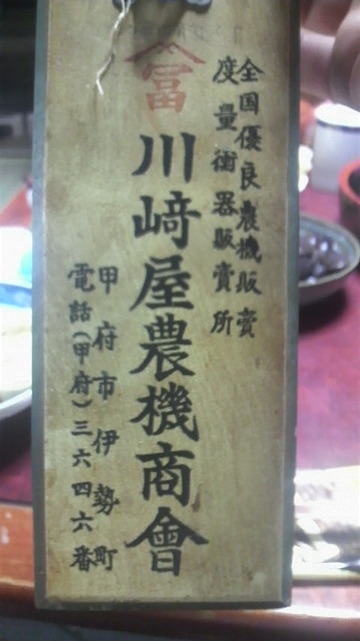 全国優良農機販賣
度量衡器販賣所
冨
川﨑屋農機商會
甲府市伊勢町
電話(甲府)三六四六番